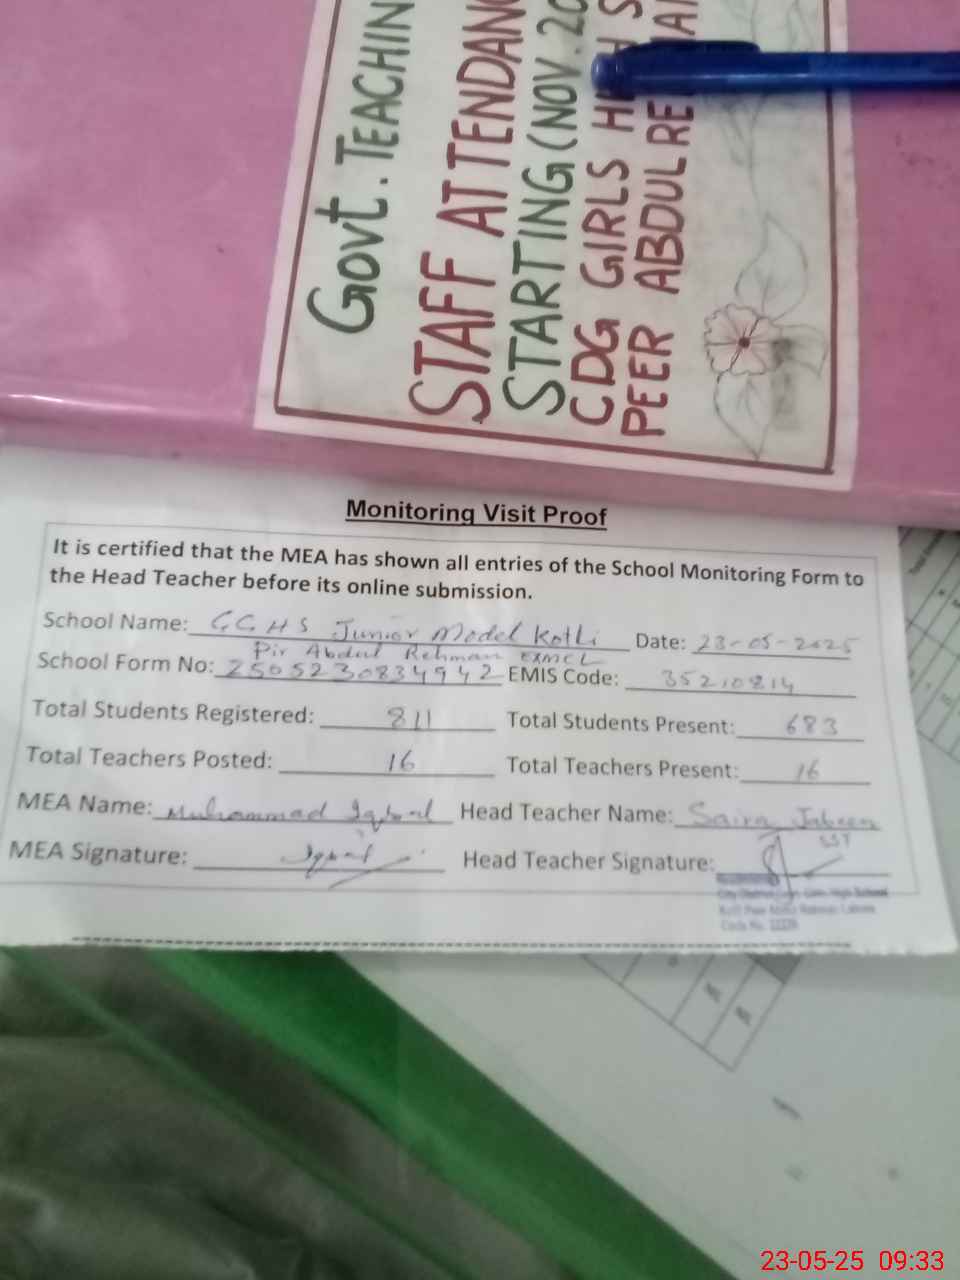 GOVT. TEACHIN
STAFF ATTENDAN
STARTING (NOV. 20
CDG GIRLS HIGH S
PEER ABDUL REHMAN
Monitoring Visit Proof
It is certified that the MEA has shown all entries of the School Monitoring Form to
the Head Teacher before its online submission.
School Name: GGHS Junior Model Kotli Date: 23-05-2025
Pir Abdul Rehman EXMCL
School Form No: 2505230834942 EMIS Code: 35210814
Total Students Registered: 811 Total Students Present: 683
Total Teachers Posted: 16 Total Teachers Present: 16
MEA Name: Muhammad Iqbal Head Teacher Name: Saira Jabeen
SST
MEA Signature: Iqbal Head Teacher Signature:
High School
Lahore
Code No.
23-05-25 09:33